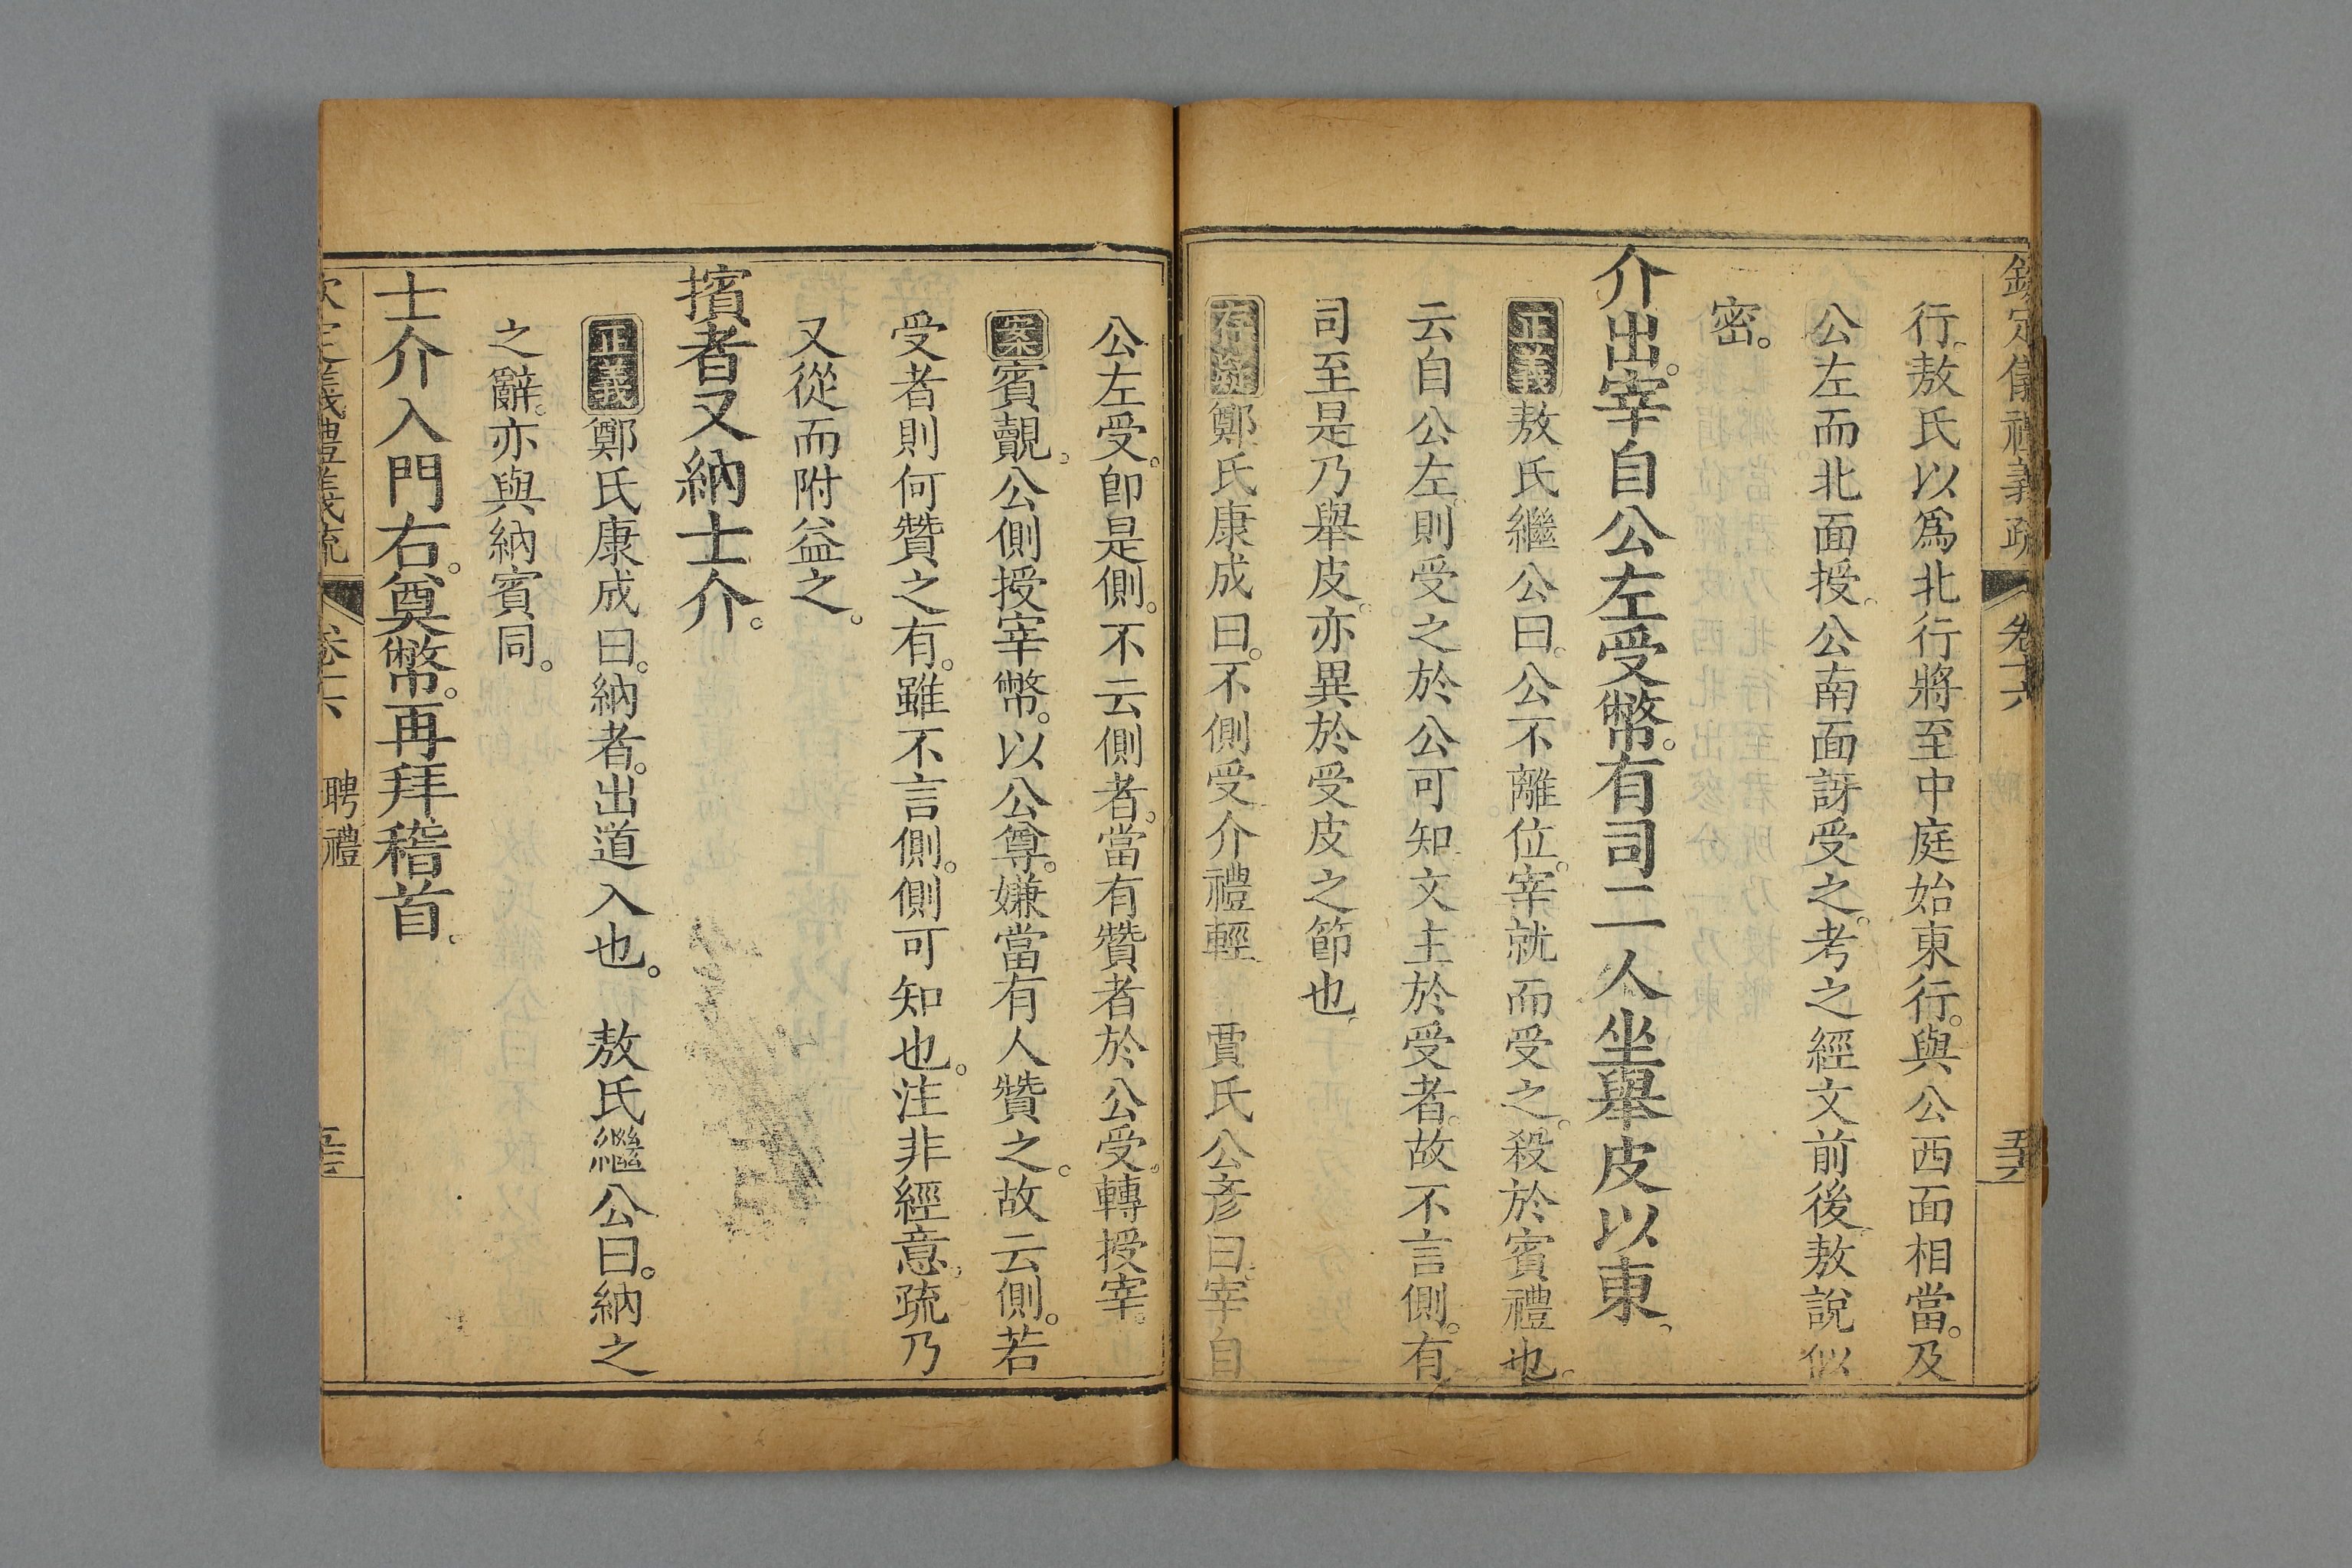 欽定儀禮義疏 卷十六 五十六
行敖氏以為北行將至中庭始東行。與公西面相當。及
公左而北面授。公南面訝受之。考之經文前後敖說似
密。
介出。宰自公左受幣。有司二人坐舉皮以東。
正義敖氏繼公曰。公不離位。宰就而受之。殺於賓禮也。
云自公左。則受之於公可知。文主於受者。故不言側。有
司至是乃舉皮。亦異於受皮之節也。
存疑鄭氏康成曰。不側受介禮輕。 賈氏公彥曰。宰自
公左受。即是側。不云側者。當有贊者於公受。轉授宰。
案賓覿。公側授宰幣。以公尊。嫌當有人贊之。故云側。若
受者則何贊之有。雖不言側。側可知也。注非經意。疏乃
又從而附益之。
擯者又納士介。
正義鄭氏康成曰。納者。出道入也。 敖氏繼公曰。納之
之辭。亦與納賓同。
士介入門右。奠幣。再拜稽首。
欽定儀禮義疏 卷十六 聘禮